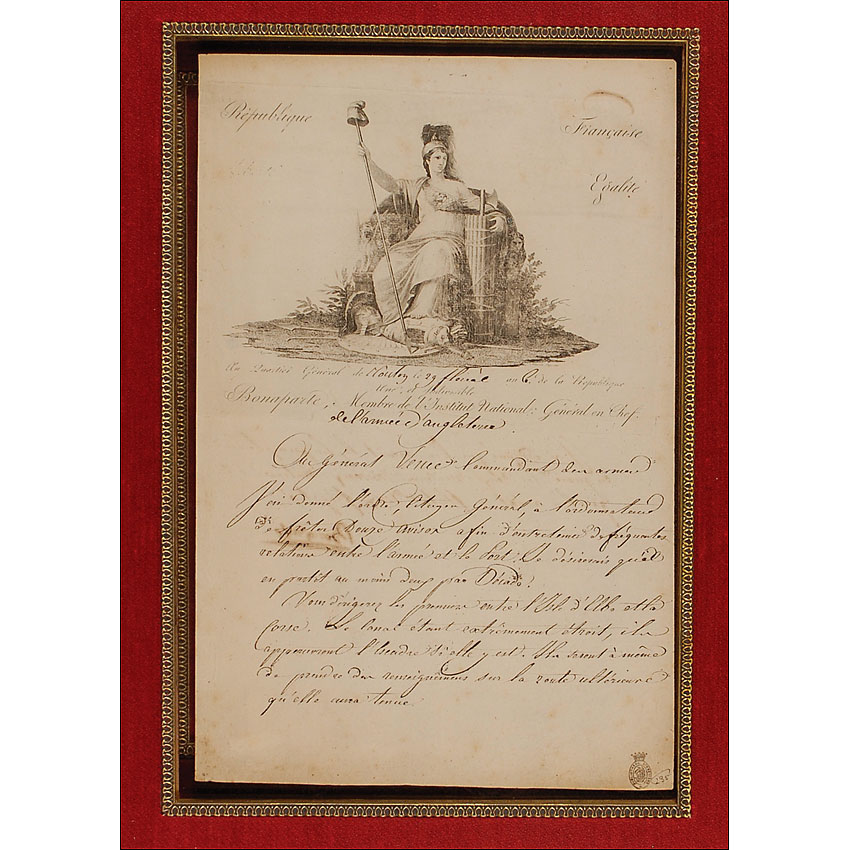 République Française
Egalité
Au Quartier Général de Toulon le 29 floréal an 6. de la République
Une et Indivisible
Bonaparte, Membre de l'Institut National, Général en Chef
de l'armée d'angleterre
Au Général Vence Commandant des armes
J'ai donné l'ordre, Citoyen Général, à l'ordonnateur
de frêter Douze avisos afin d'entretenir de fréquentes
relations entre l'armée et le Port. Je désirerais qu'il
en partît au moins deux par Décade.
Vous dirigerez les premiers entre l'Isle d'Elbe et la
Corse. Le Canal étant extrêmement étroit, ils
appercevront l'Escadre si elle y est. Ils seront à même
de prendre des renseignemens sur la route ultérieure
qu'elle aura tenue.